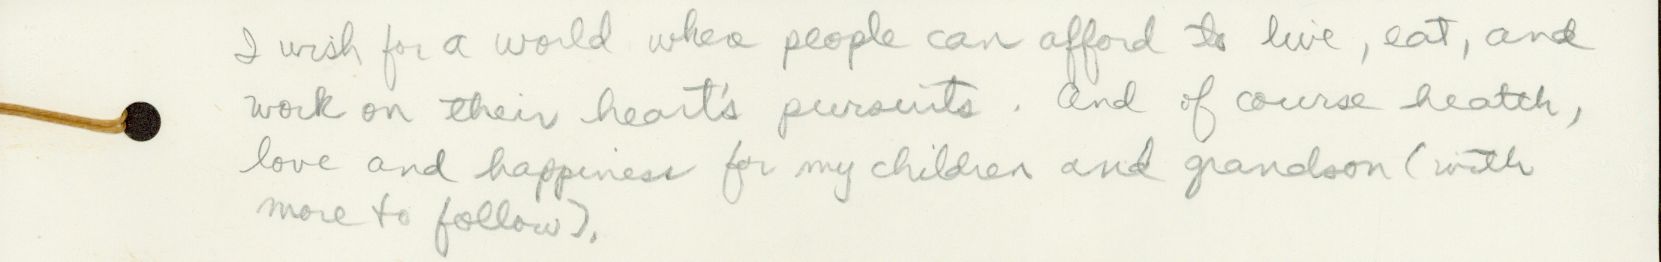 I wish for a world where people can afford to live, eat, and
work on their heart's pursuits. And of course heatth,
love and happiness for my children and grandson (with
more to follow).